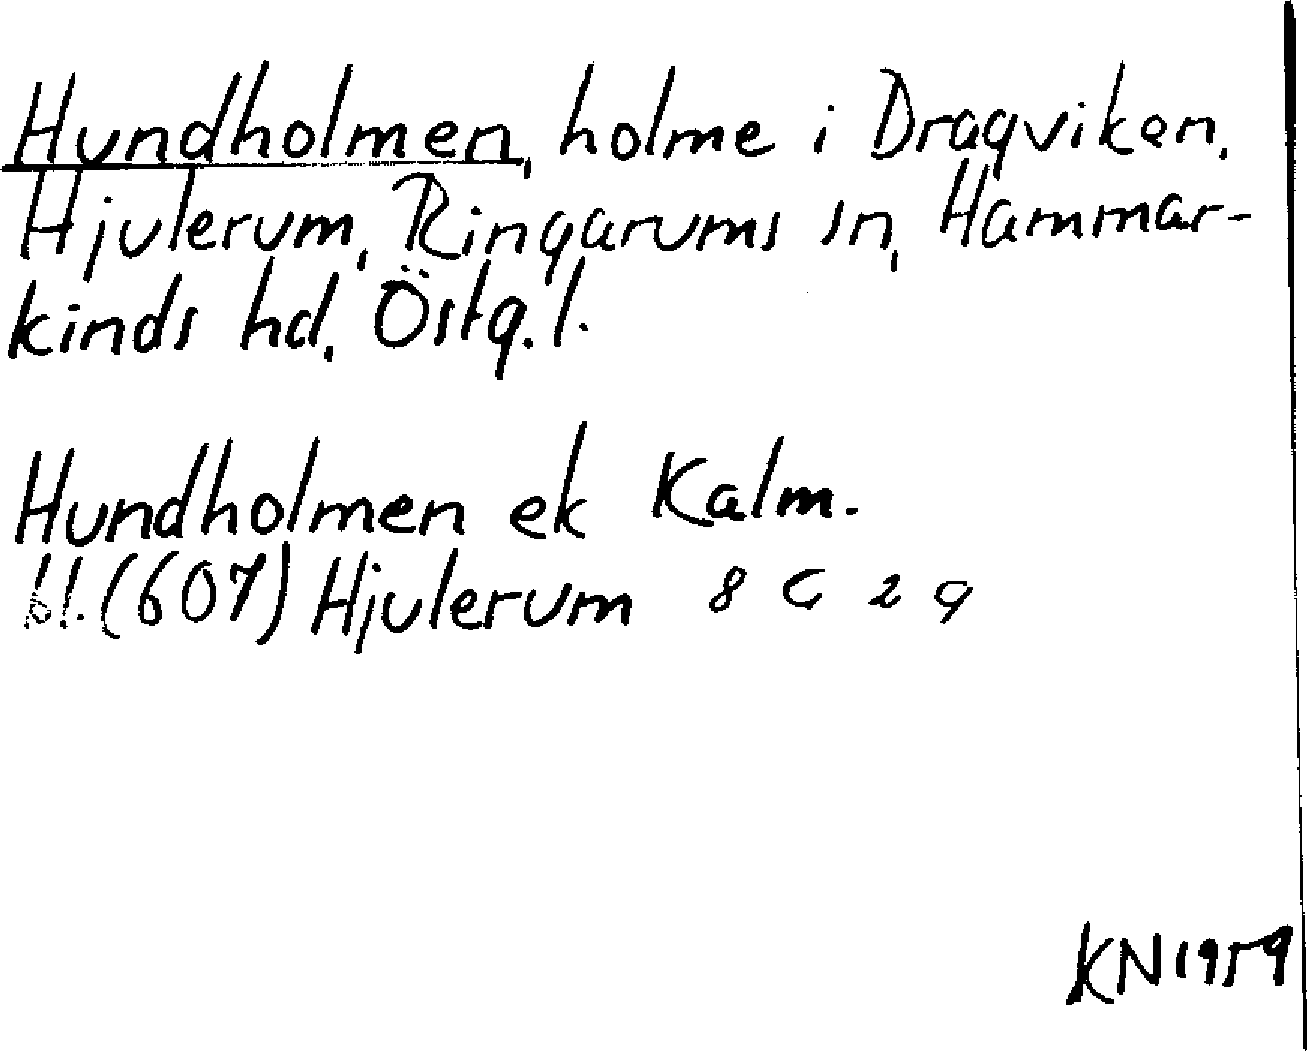 Hundholmen, holme i Dragviken,
Hjulerum, Ringarums sn, Hammar-
kinds hd, Östg. l.
Hundholmen ek Kalm.
bl. (607) Hjulerum 8 G 2 g
KN 1959